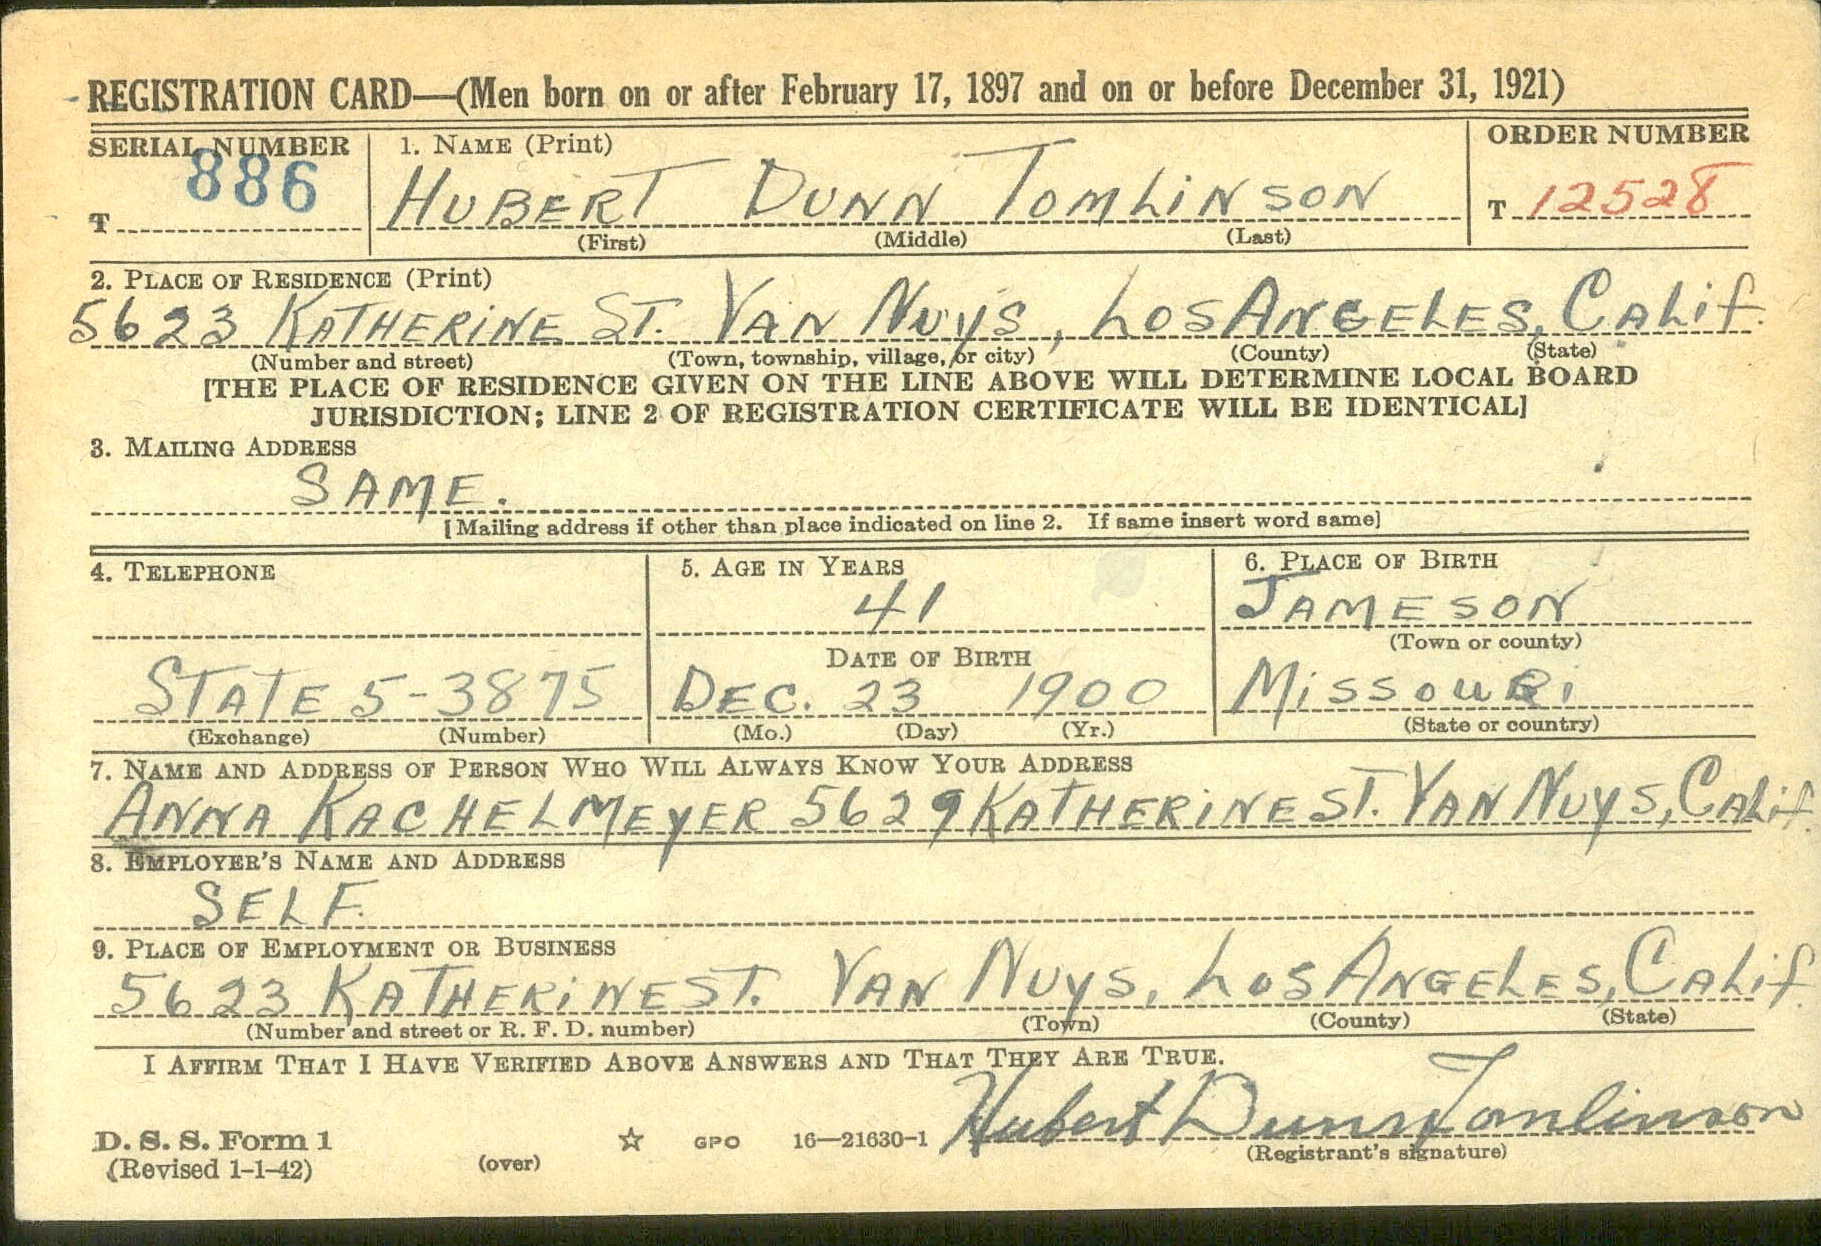 REGISTRATION CARD—(Men born on or after February 17, 1897 and on or before December 31, 1921)
SERIAL NUMBER 1. NAME (Print) ORDER NUMBER
886
T HUBERT DUNN TOMLINSON T 12528
(First) (Middle) (Last)
2. PLACE OF RESIDENCE (Print)
5623 KATHERINE ST. VAN NUYS, LOS ANGELES, CALIF.
(Number and street) (Town, township, village, or city) (County) (State)
[THE PLACE OF RESIDENCE GIVEN ON THE LINE ABOVE WILL DETERMINE LOCAL BOARD
JURISDICTION; LINE 2 OF REGISTRATION CERTIFICATE WILL BE IDENTICAL]
3. MAILING ADDRESS
SAME.
[Mailing address if other than place indicated on line 2. If same insert word same]
4. TELEPHONE 5. AGE IN YEARS 6. PLACE OF BIRTH
41 JAMESON
(Town or county)
DATE OF BIRTH
STATE 5-3875 DEC. 23 1900 MISSOURI
(Exchange) (Number) (Mo.) (Day) (Yr.) (State or country)
7. NAME AND ADDRESS OF PERSON WHO WILL ALWAYS KNOW YOUR ADDRESS
ANNA KACHELMEYER 5629 KATHERINE ST. VAN NUYS, CALIF.
8. EMPLOYER'S NAME AND ADDRESS
SELF.
9. PLACE OF EMPLOYMENT OR BUSINESS
5623 KATHERINE ST. VAN NUYS, LOS ANGELES, CALIF.
(Number and street or R. F. D. number) (Town) (County) (State)
I AFFIRM THAT I HAVE VERIFIED ABOVE ANSWERS AND THAT THEY ARE TRUE.
Hubert Dunn Tomlinson
D. S. S. Form 1 GPO 16—21630-1 (Registrant's signature)
(Revised 1-1-42) (over)